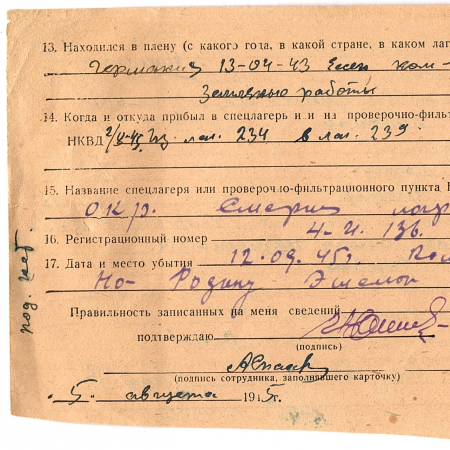 13. Находился в плену (с какого года, в какой стране, в каком лаг
Германия 13-04-43 Есен
работы
14. Когда и откуда прибыл в спецлагерь или на проверочно-фильт
НКВД 2/V-45г. из лаг. 234 в лаг. 239
15. Название спецлагеря или проверочно-фильтрационного пункта Н
окр.
16. Регистрационный номер 4-И. 136.
17. Дата и место убытия 12.09.45г.
На Родину Эшелон
Правильность записанных на меня сведений
подтверждаю
(подпись)
(подпись сотрудника, заполнявшего карточку)
"5" августа 1945г.